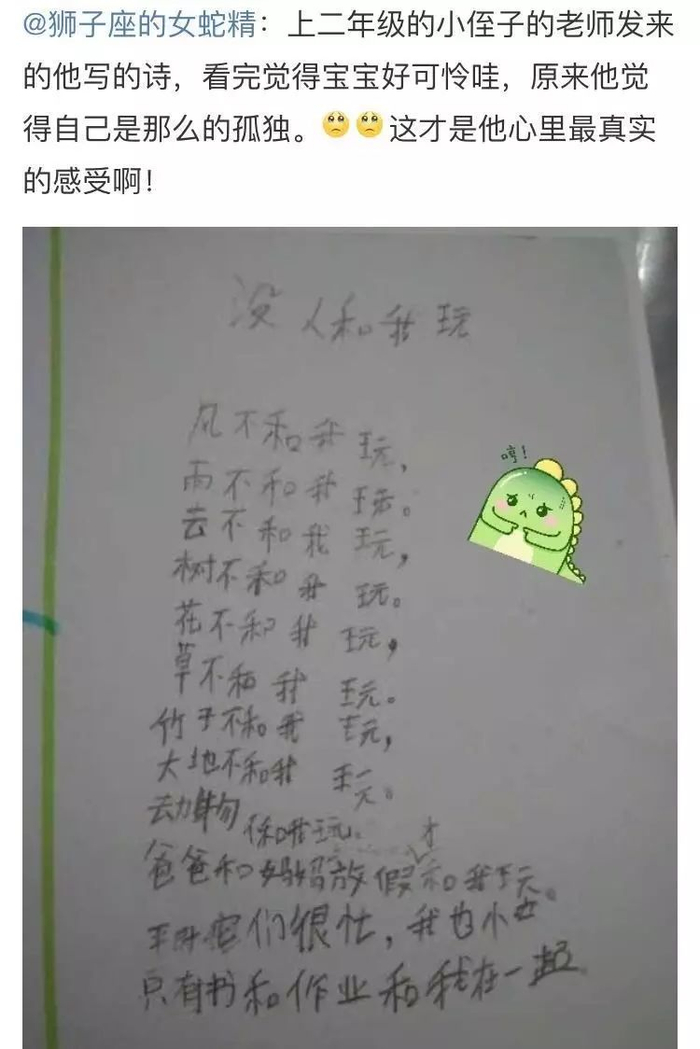 @狮子座的女蛇精：上二年级的小侄子的老师发来
的他写的诗，看完觉得宝宝好可怜哇，原来他觉
得自己是那么的孤独。🥺🥺这才是他心里最真实
的感受啊！
没人和我玩
风不和我玩，
哼！
雨不和我玩。
云不和我玩，
树不和我玩。
花不和我玩，
草不和我玩。
竹子不和我玩，
大地不和我玩。
动物 和我玩。
爸爸和妈妈放假才和我玩。
平时它们很忙，我也
只有书和作业和我在一起